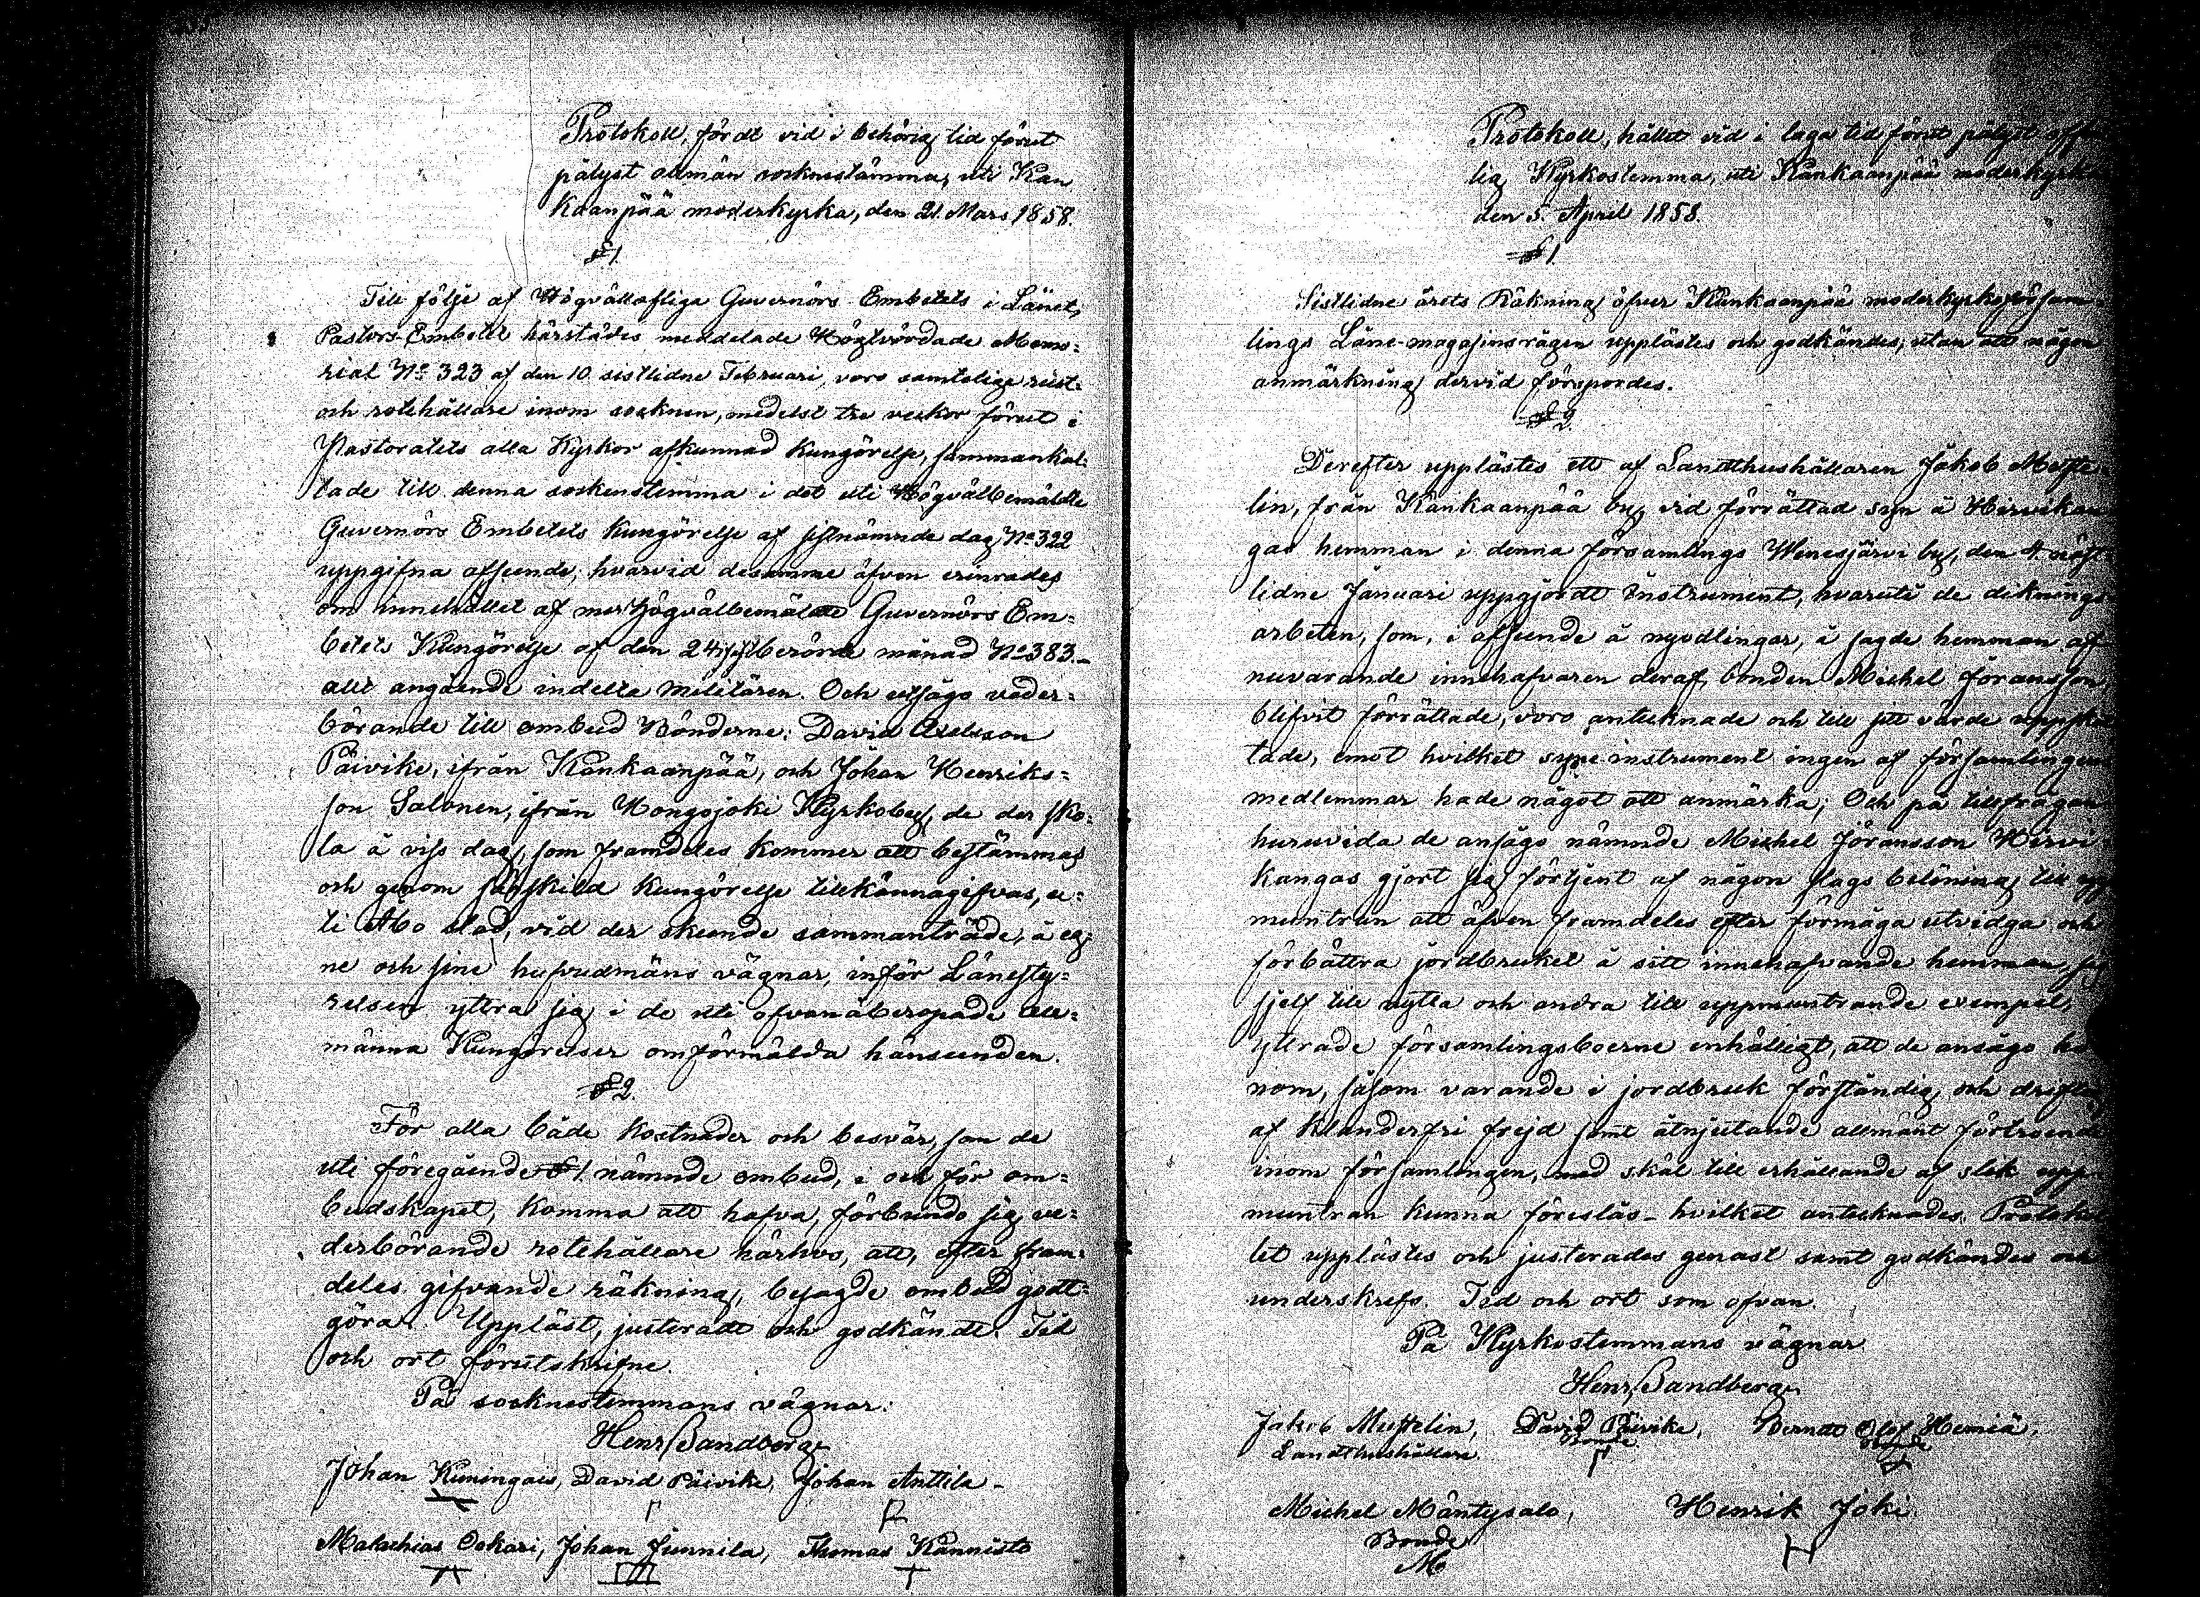 Protokoll, fördt vid i behörig tid förut
pålyst allmän socknestämma, uti Kan
kaanpää moderkyrka, den 21. Mars 1858.
§ 1.
Till följe af Högvällofliga Guvernörs Embetets i Länet,
Pastors-Embetet härstädes meddelade Högtvördade Memo=
rial No 323 af den 10 sistlidne Februari, voro samtelige rust-
och rotehållare inom socknen, medelst tre veckor förut i
Pastoratets alla Kyrkor afkunnad Kungörelse, sammankal-
lade till denna sockenstemma i det uti Högvälbemälde
Guvernörs Embetets Kungörelse af sistnämnde dag No 322
uppgifna afseende; hvarvid desamme äfven erinrades
om innehållet af mer Högvälbemälde Guvernörs Em=
betets Kungörelse af den 24 berörde månad No 383.-
allt angående indelta militären. Och utsågo veder=
börande till ombud Bönderne: David Axelsson
Päivike, ifrån Kankaanpää, och Johan Henriks=
son Salonen, ifrån Hongojoki Kyrkoby, de der sko=
la å viss dag, som framdeles kommer att bestämmas
och genom särskild Kungörelse tillkännagifvas, u=
ti Åbo stad, vid der skeende sammanträde, å eg=
ne och sine hufvudmäns vägnar, inför Länesty=
relsen yttra sig i de uti ofvanåberopade all=
männa Kungörelser omförmälda hänseenden.
§ 2.
För alla både kostnader och besvär, som de
uti föregående § 1. nämnde ombud, i och för om=
budskapet, komma att hafva, förbundo sig ve=
derbörande rotehållare härhos, att, efter fram=
deles gifvande räkning, besagde ombud godt=
göra. Uppläst, justeradt och godkändt. Tid
och ort förutskrifne.
På socknestemmans vägnar:
Henr. Sandberg
Johan Kuningais, David Päivike, Johan Anttila -
Malachias Oskari, Johan Junnila, Thomas Kannisto
Protokoll, hållet vid i laga tid förut pålyst
lig Kyrkostemma, uti Kankaanpää moderkyrka
den 5. April 1858.
§ 1.
Sistlidne årets Räkning öfver Kankaanpää moderkyrkoförsam=
lings Låne-magasinsrågen upplästes och godkändes, utan att någon
anmärkning dervid förspordes.
§ 2.
Derefter upplästes ett af Landthushållaren Jakob
lin, från Kankaanpää by, vid förrättad syn å Hirvikan
gas hemman i denna församlings Wenesjärvi by, den 4
lidne Januari uppgjordt instrument, hvaruti de diknings
arbeten, som, i afseende å nyodlingar, å sagde hemman af
nuvarande innehafvaren deraf, bonden Michel Jöransson,
blifvit förrättade, voro antecknade och till sitt värde
tade, emot hvilket syneinstrument ingen af församlingens
medlemmar hade något att anmärka; Och på tillfrågan
huruvida de ansågo nämnde Michel Jöransson Hirvi=
kangas gjort sig förtjent af någon slags belöning till upp
muntran att äfven framdeles efter förmåga utvidga och
förbättra jordbruket å sitt innehafvande hemman, sig
sjelf till nytta och andra till uppmuntrande exempel,
yttrade församlingsboerne enhälligt, att de ansågo ho
nom, såsom varande i jordbruk förståndig och driftig
af klanderfri frejd samt åtnjutande allmänt förtroende
inom församlingen, med skäl till erhållande af slik upp
muntran kunna föreslås - hvilket antecknades. Protokol
let upplästes och justerades genast samt godkändes och
underskrefs. Tid och ort som ofvan.
På Kyrkostemmans vägnar
Henr. Sandberg
Jakob David Päivike, Berndt Olof Hemiä,
Landthushållare. Bonde Bonde
Michel Mäntysalo, Henrik Joki
Bonde
M